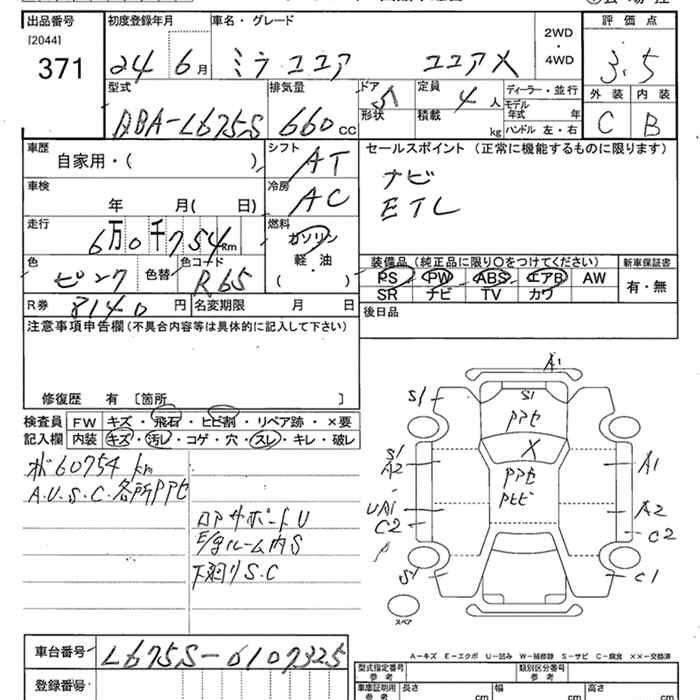 出品番号 初度登録年月 車名・グレード 2WD・4WD 評価点
[2044]
371 24 6月 ミラココア ココアX 3.5
型式 排気量 ドア 定員 ディーラー・並行 外装 内装
ABA-L675S 660cc 5 4人 モデル年式 年 C B
形状 積載 kg ハンドル 左・右
車歴 自家用・( ) シフト AT セールスポイント (正常に機能するものに限ります)
車検 年 月( 日) 冷房 AC ナビ
ETC
走行 6万0千754Km 燃料 ガソリン
軽・油
( )
色 ピンク 色替 色コード R65
装備品 (純正品に限り○をつけてください) 新車保証書
PS PW ABS エアB AW 有・無
SR ナビ TV カワ
R券 8140円 名変期限 月 日 後日品
注意事項申告欄 (不具合内容等は具体的に記入して下さい)
修復歴 有 [箇所 ]
検査員 FW キズ・飛石・ヒビ割・リペア跡・×要
記入欄 内装 キズ・汚レ・コゲ・穴・スレ・キレ・破レ
60754km
A.U.S.C.各所PPセ
ロアサポートU
E/gルーム内S
下廻りS.C
A1
S1 S1
PPセ
X
S1
A2 PPセ A1
UA1 A2
C2 C2
S1 C1
スペア
A-キズ E-エクボ U-凹み W-補修跡 S-サビ C-腐食 ××-交換済
車台番号 L675S-0107325
登録番号
型式指定番号 参考 類別区分番号 参考
車庫証明用 参考 長さ cm 幅 cm 高さ cm